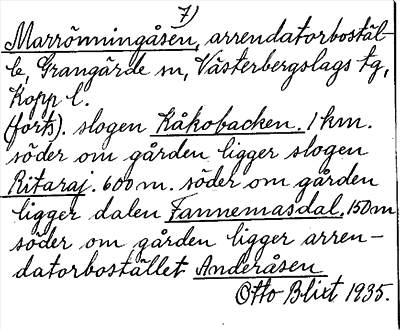 7)
Marrönningåsen, arrendatorbostäl-
le, Grangärde sn, Västerbergslags tg,
Kopp l.
(forts). slogen Kåkobacken. 1 km.
söder om gården ligger slogen
Ritaraj. 600 m. söder om gården
ligger dalen Fannemasdal. 150 m
söder om gården ligger arren-
datorbostället Anderåsen
Otto Blixt 1935.